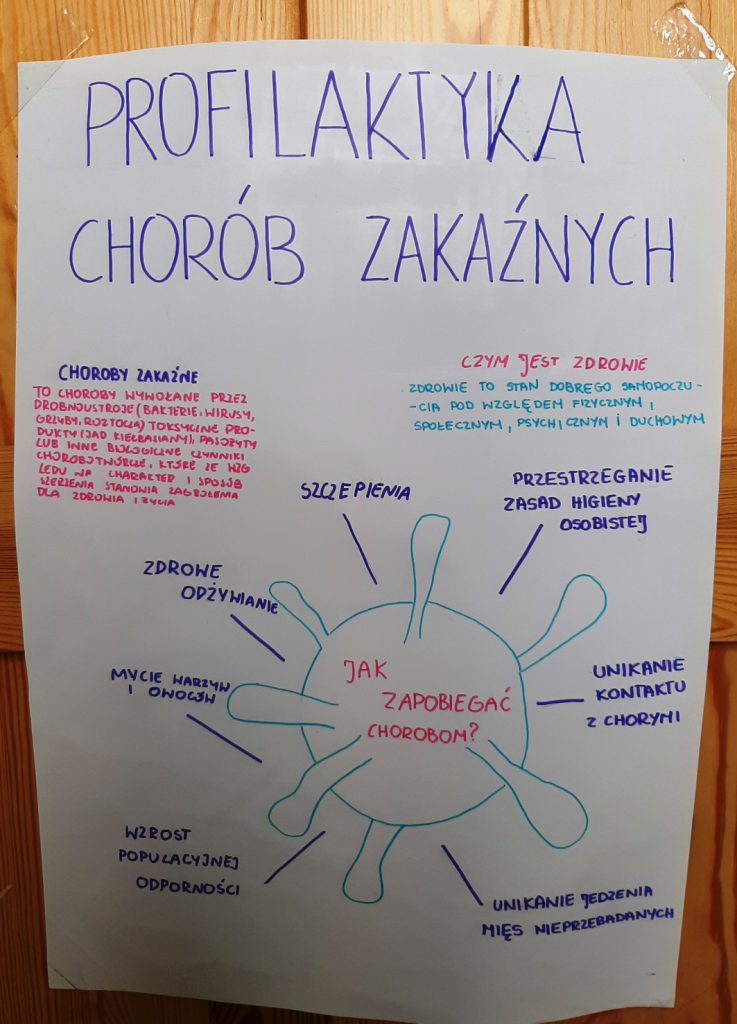 PROFILAKTYKA
CHORÓB ZAKAŹNYCH
CHOROBY ZAKAŹNE
TO CHOROBY WYWOŁANE PRZEZ
DROBNOUSTROJE (BAKTERIE, WIRUSY,
GRZYBY, ROZTOCZA) TOKSYCZNE PRO-
DUKTY (JAD KIEŁBASIANY), PASOŻYTY
LUB INNE BIOLOGICZNE CZYNNIKI
CHOROBOTWÓRCZE, KTÓRE ZE WZG
LĘDU NA CHARAKTER I SPOSÓB
SZERZENIA STANOWIA ZAGROŻENIA
DLA ZDROWIA I ŻYCIA
CZYM JEST ZDROWIE
ZDROWIE TO STAN DOBREGO SAMOPOCZU-
-CIA POD WZGLĘDEM FIZYCZNYM,
SPOŁECZNYM, PSYCHICZNYM I DUCHOWYM
SZCZEPIENIA
PRZESTRZEGANIE
ZASAD HIGIENY
OSOBISTEJ
ZDROWE
ODŻYWIANIE
MYCIE WARZYW
I OWOCÓW
JAK
ZAPOBIEGAĆ
CHOROBOM?
UNIKANIE
KONTAKTU
Z CHORYMI
WZROST
POPULACYJNEJ
ODPORNOŚCI
UNIKANIE JEDZENIA
MIĘS NIEPRZEBADANYCH